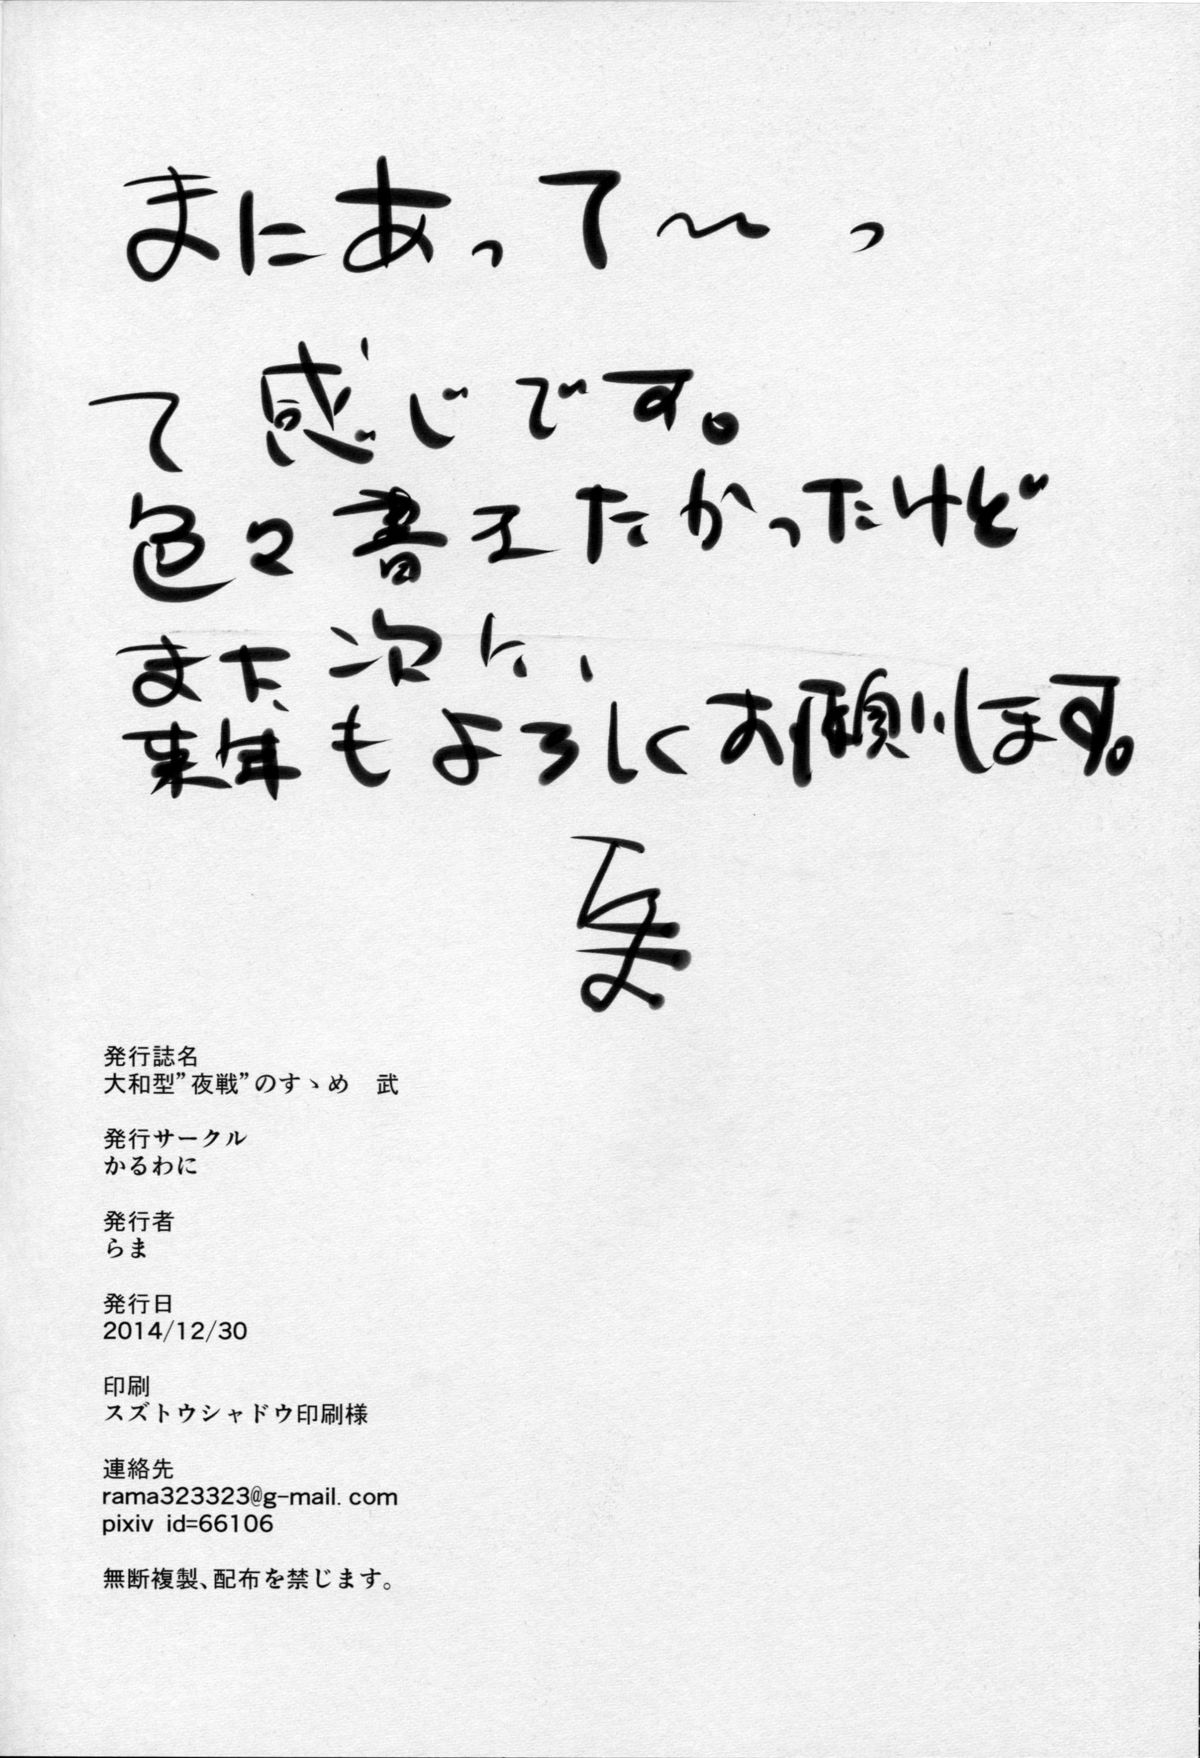 まにあって〜っ
て感じです。
色々書きたかったけど
また次に、
来年もよろしくお願いします。
らま
発行誌名
大和型”夜戦”のすゝめ　武
発行サークル
かるわに
発行者
らま
発行日
2014/12/30
印刷
スズトウシャドウ印刷様
連絡先
rama323323@g-mail.com
pixiv id=66106
無断複製、配布を禁じます。